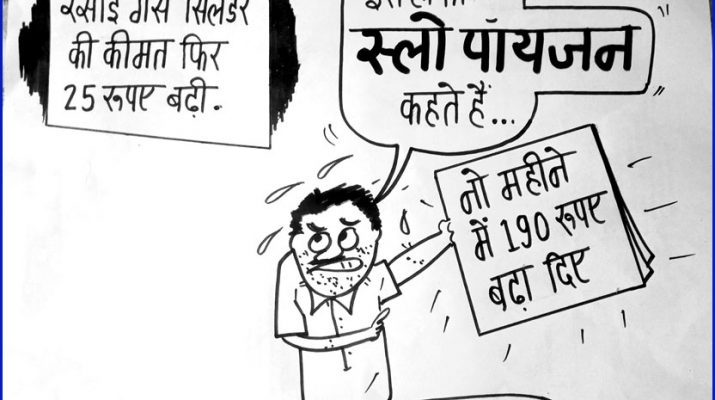 रसोई गैस सिलेंडर
की कीमत फिर
25 रूपए बढ़ी.
स्लो पॉयजन
कहते हैं...
नो महीने
में 190 रूपए
बढ़ा दिए